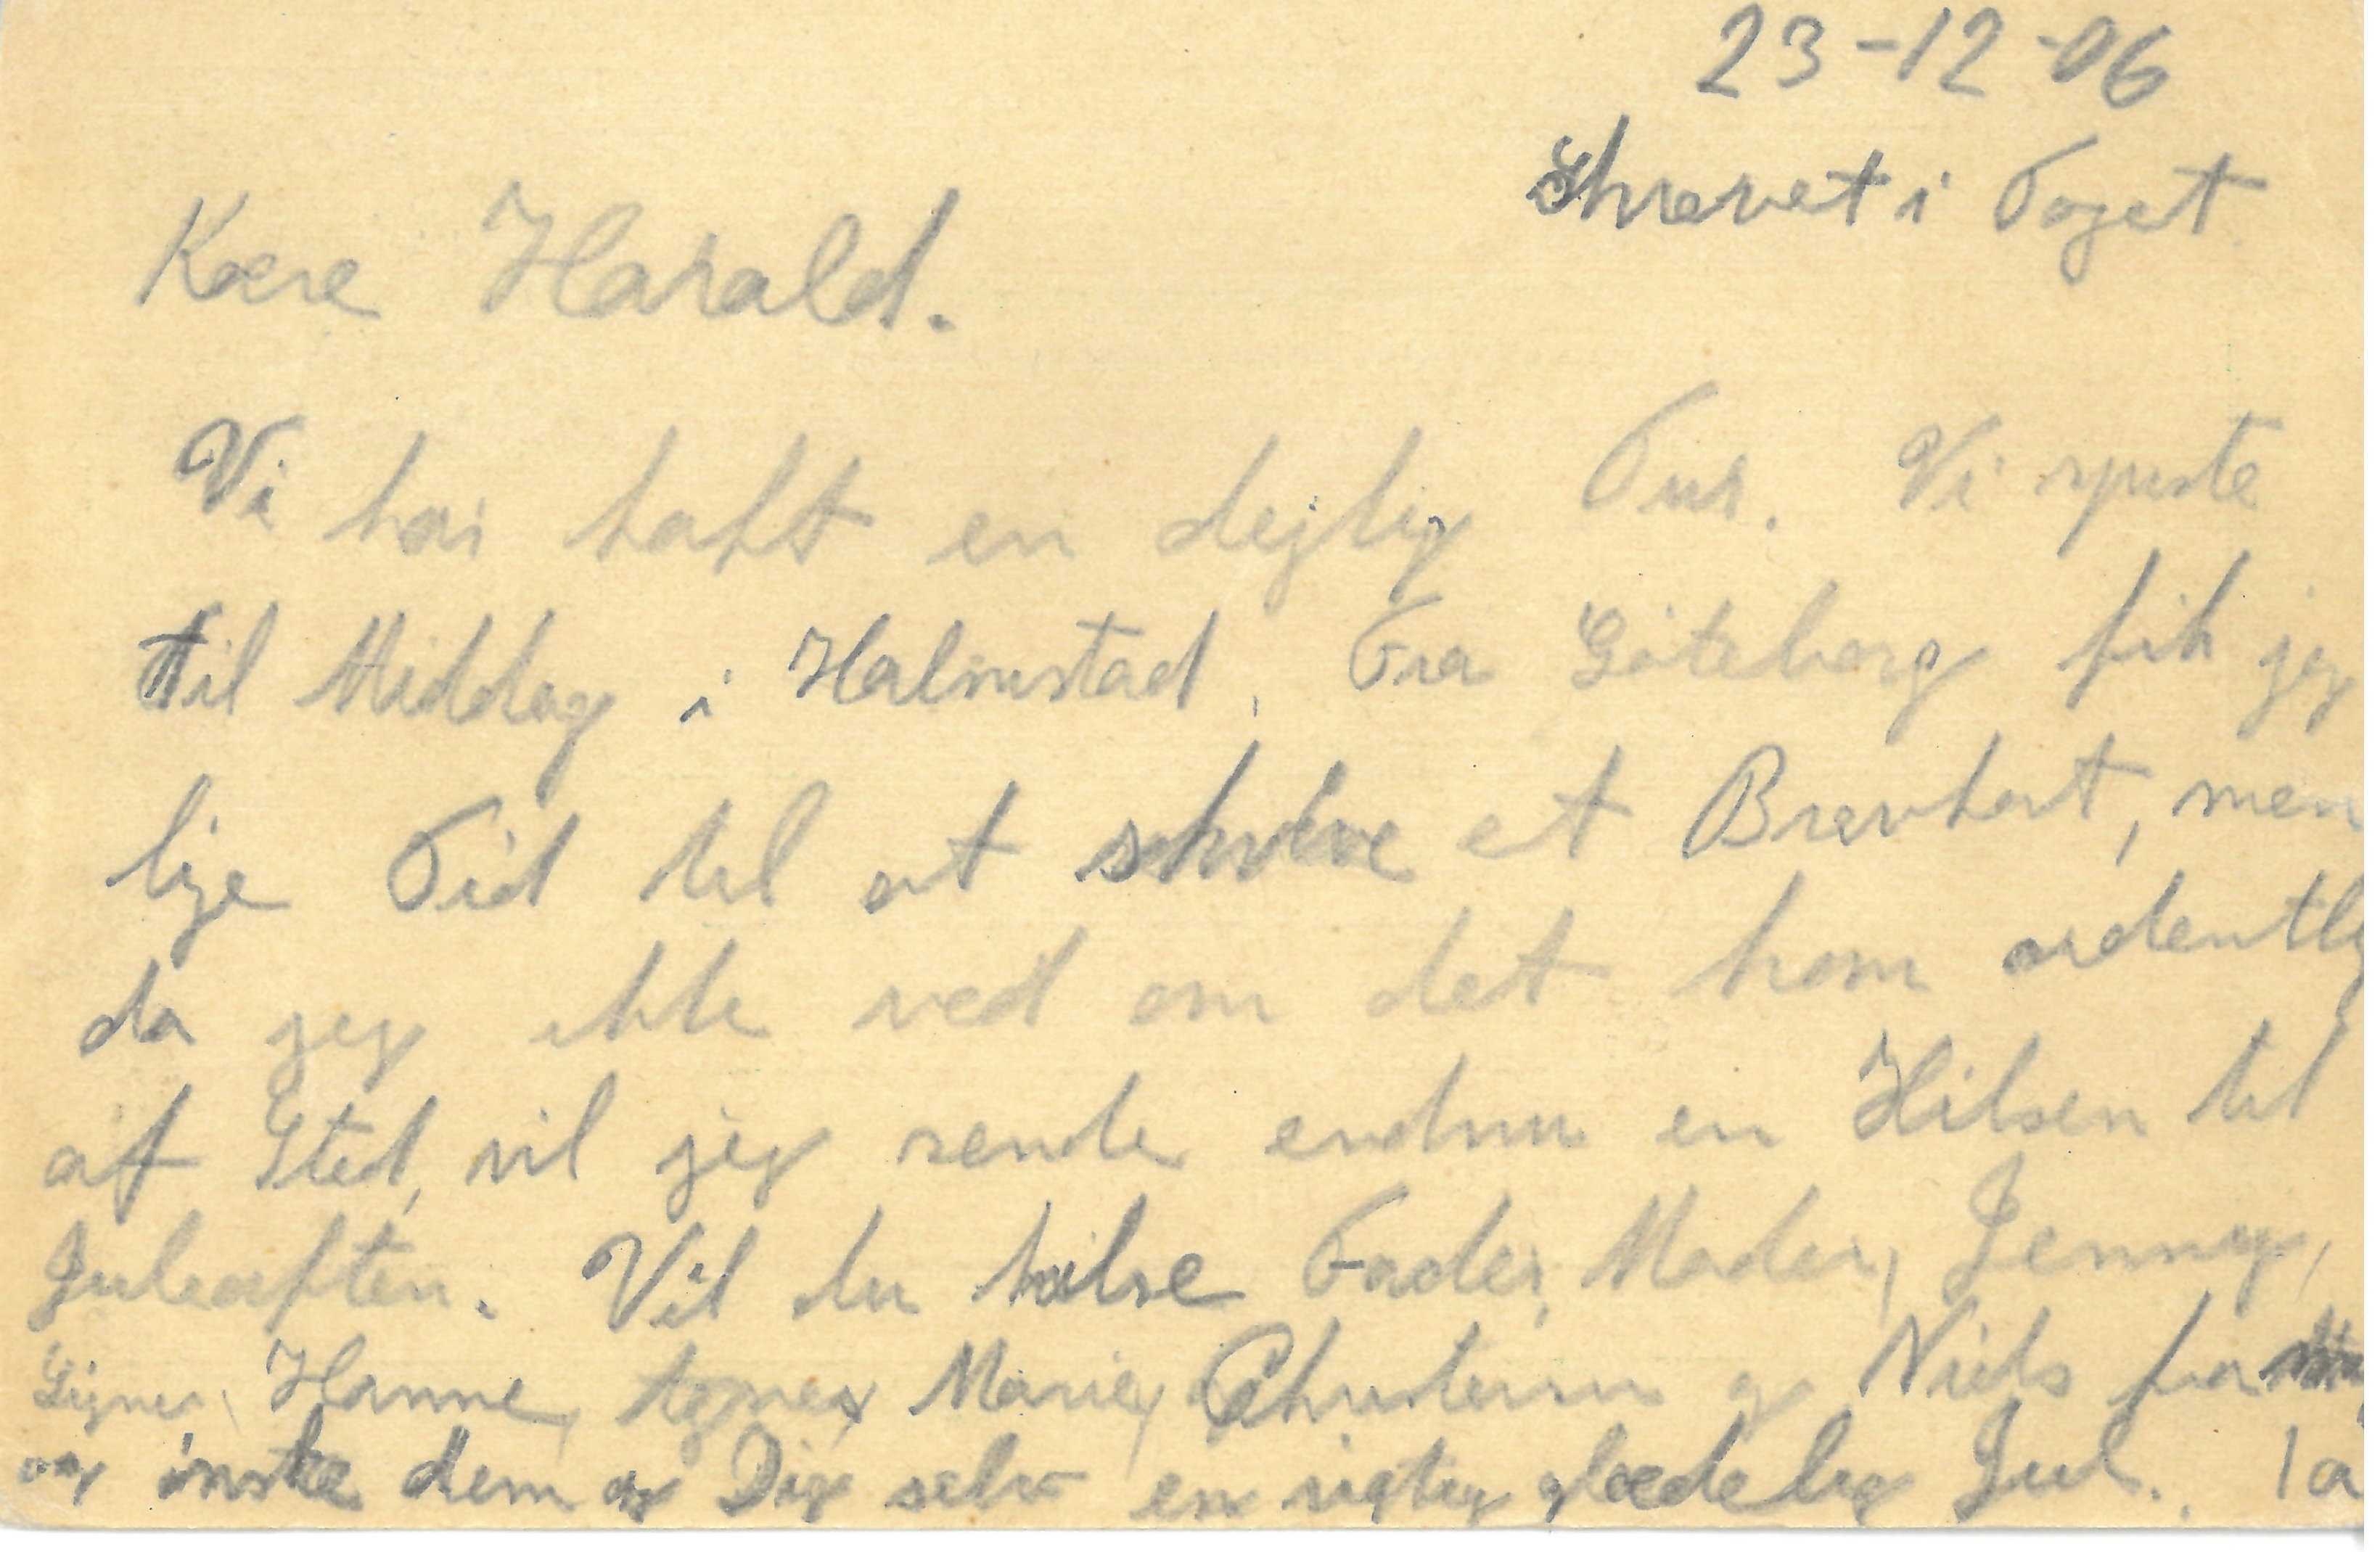 23-12-06
Skrevet i Toget.
Kære Harald.
Vi har haft en dejlig Tur. Vi spiste
til Middag i Halmstad. Fra Göteborg fik jeg
lige Tid til at skrive et Brevkort, men
da jeg ikke ved om det kom ordentlig
af Sted, vil jeg sende endnu en Hilsen til
Juleaften. Vil du hilse Fader, Moder, Jenny,
Signe, Hanne, Agnes, Marie, og Niels fra
og ønske dem og Dig selv en rigtig glædelig Jul.